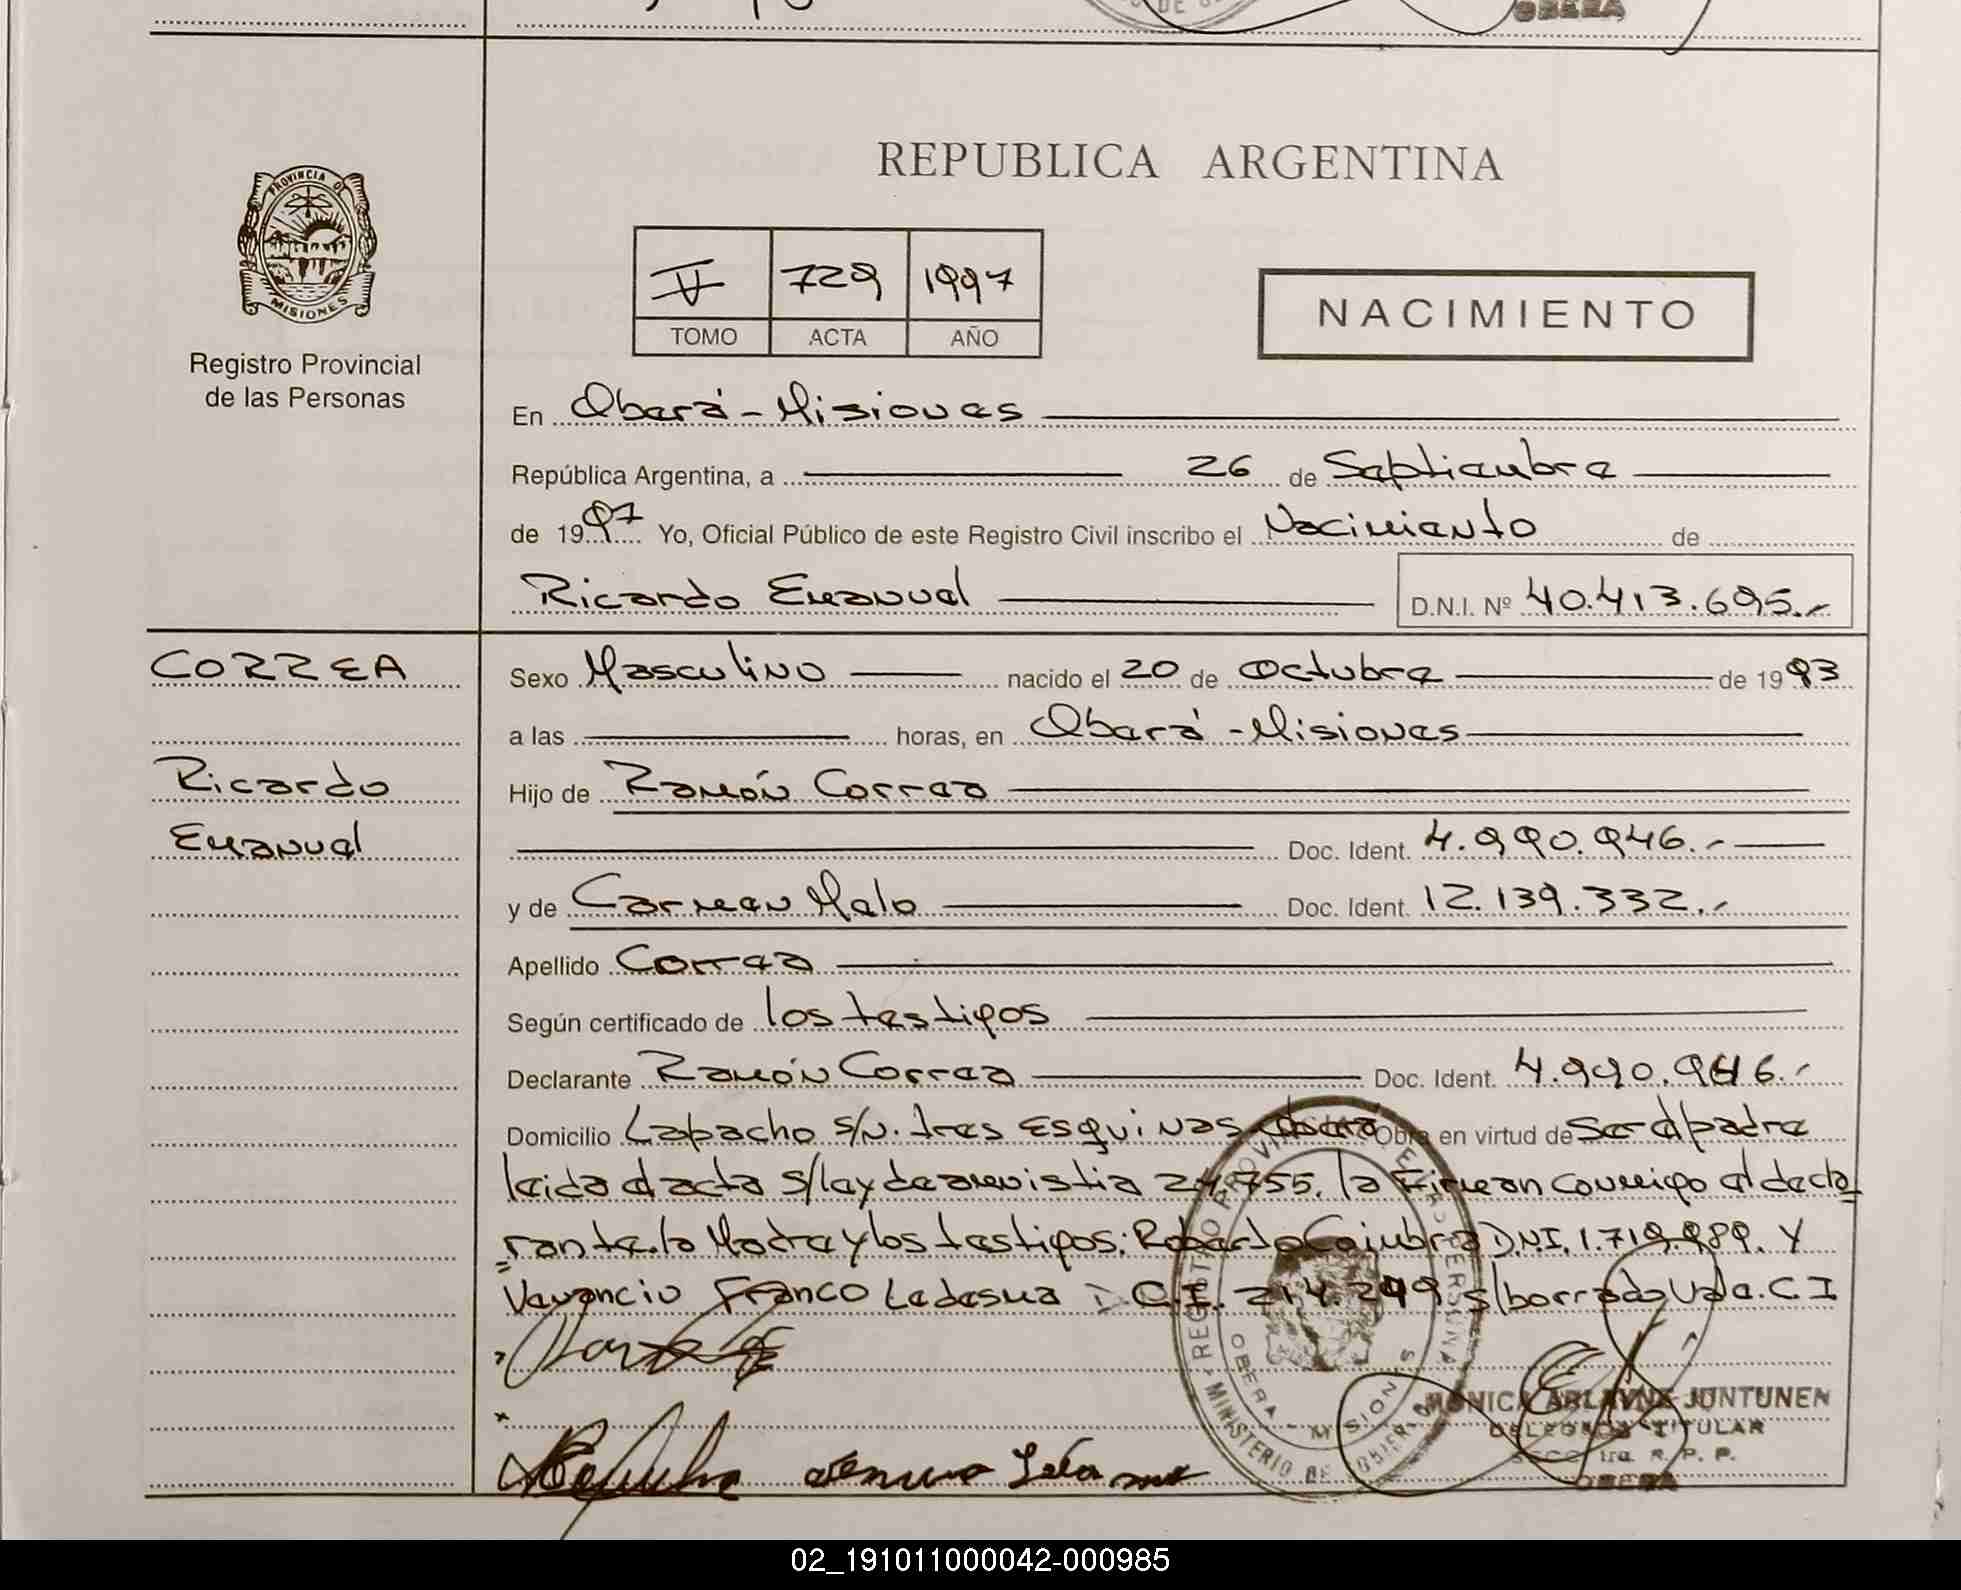 OBERA
PROVINCIA DE
MISIONES
Registro Provincial
de las Personas
REPUBLICA ARGENTINA
V 729 1997
TOMO ACTA AÑO
NACIMIENTO
En Oberá - Misiones
República Argentina, a 26 de Septiembre
de 1997 Yo, Oficial Público de este Registro Civil inscribo el Nacimiento de
Ricardo Emanuel D.N.I. Nº 40.413.695.-
CORREA
Ricardo
Emanuel
Sexo Masculino nacido el 20 de Octubre de 1993
a las horas, en Oberá - Misiones
Hijo de Ramón Correa
Doc. Ident. 4.990.946.-
y de Carmen Melo Doc. Ident. 12.139.332.-
Apellido Correa
Según certificado de los testigos
Declarante Ramón Correa Doc. Ident. 4.990.946.-
Domicilio Lapacho s/n. tres Esquinas Oberá Obra en virtud de Ser el padre
leida el acta s/ley de amnistia 24.755. la Firman conmigo el decla
rante. la Madre y los testigos: Roberto Coimbra D.N.I. 1.719.989. Y
Venancio Franco Ledesma C.I. 214.299 s/borrado Vale. C I
REGISTRO PROVINCIAL DE LAS PERSONAS
MINISTERIO DE GOBIERNO
OBERA - MISIONES
MONICA ARLAYNE JUNTUNEN
DELEGADA TITULAR
R. P. P.
OBERA
02_191011000042-000985